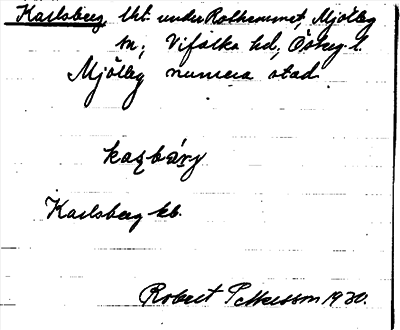 Karlsberg lht. under Rothemmet, Mjölby
sn, Vifolka hd, Östg. l.
Mjölby numera stad
Karlsberg kb.
Robert Pettersson 1930.